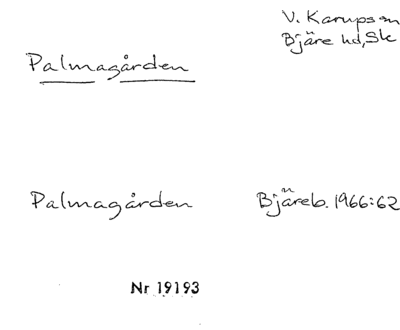 V. Karups sn
Bjäre hd, Sk
Palmagården
Palmagården Bjäreb. 1966:62
Nr 19193